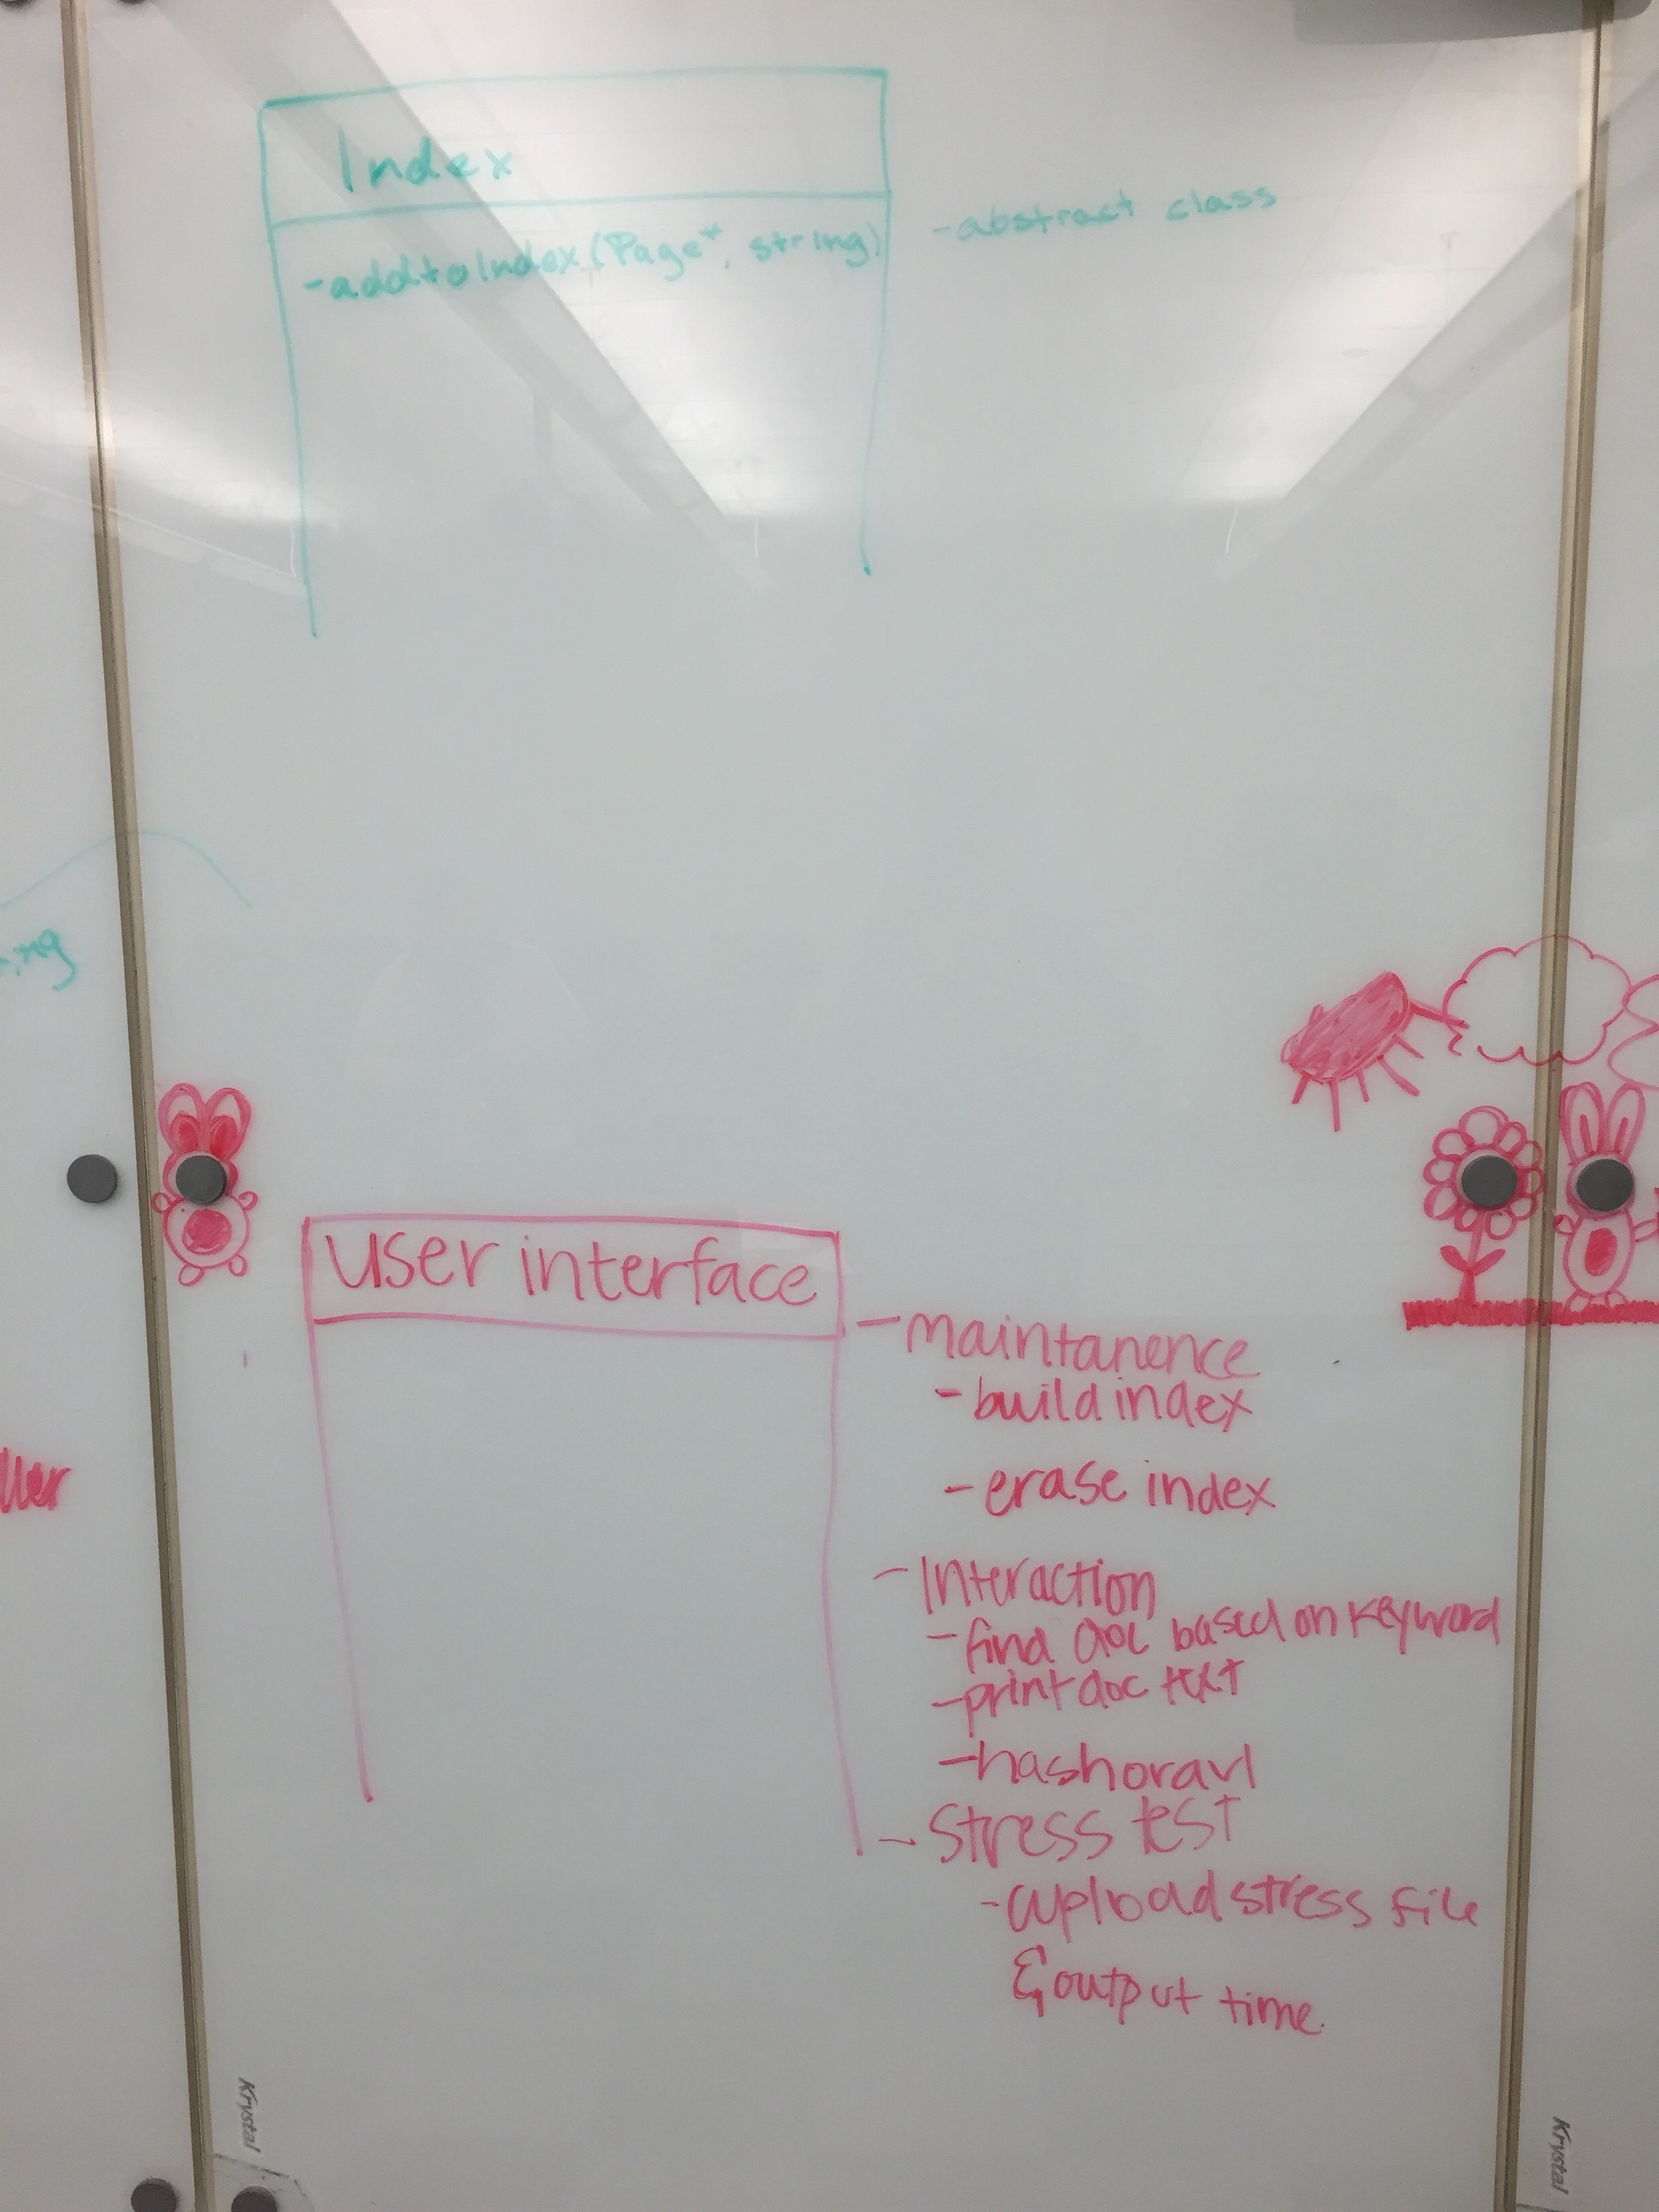 Index
-addtoIndex(Page*, string)
-abstract class
user interface
-maintanence
-build index
-erase index
-Interaction
-find doc based on keyword
-print doc text
-hash or avl
-stress test
-upload stress file
& output time
Krystal
Krystal